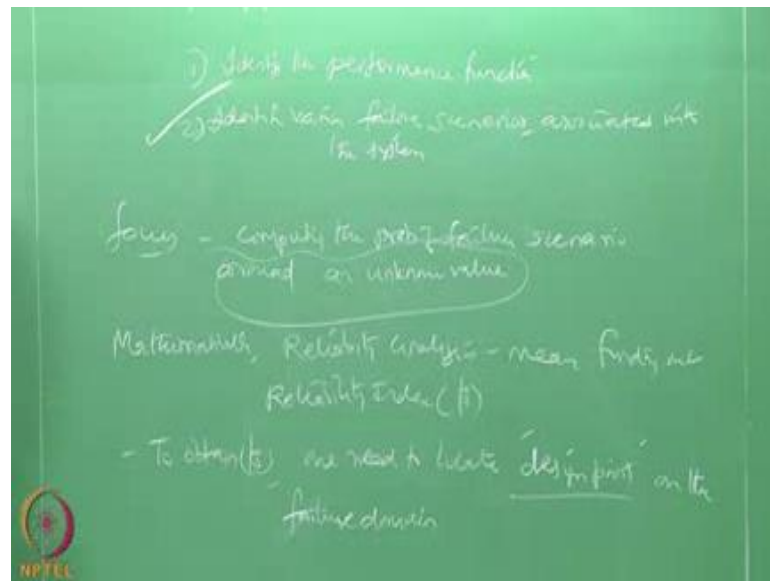 1) Identify the performance function
2) Identify various failure scenarios associated with
the system
focus - computing the prob of failure scenario
around an unknown value
Mathematically, Reliability analysis - mean finding out
Reliability Index (β)
- To obtain (β) one need to locate 'design point' on the
failure domain
NPTEL